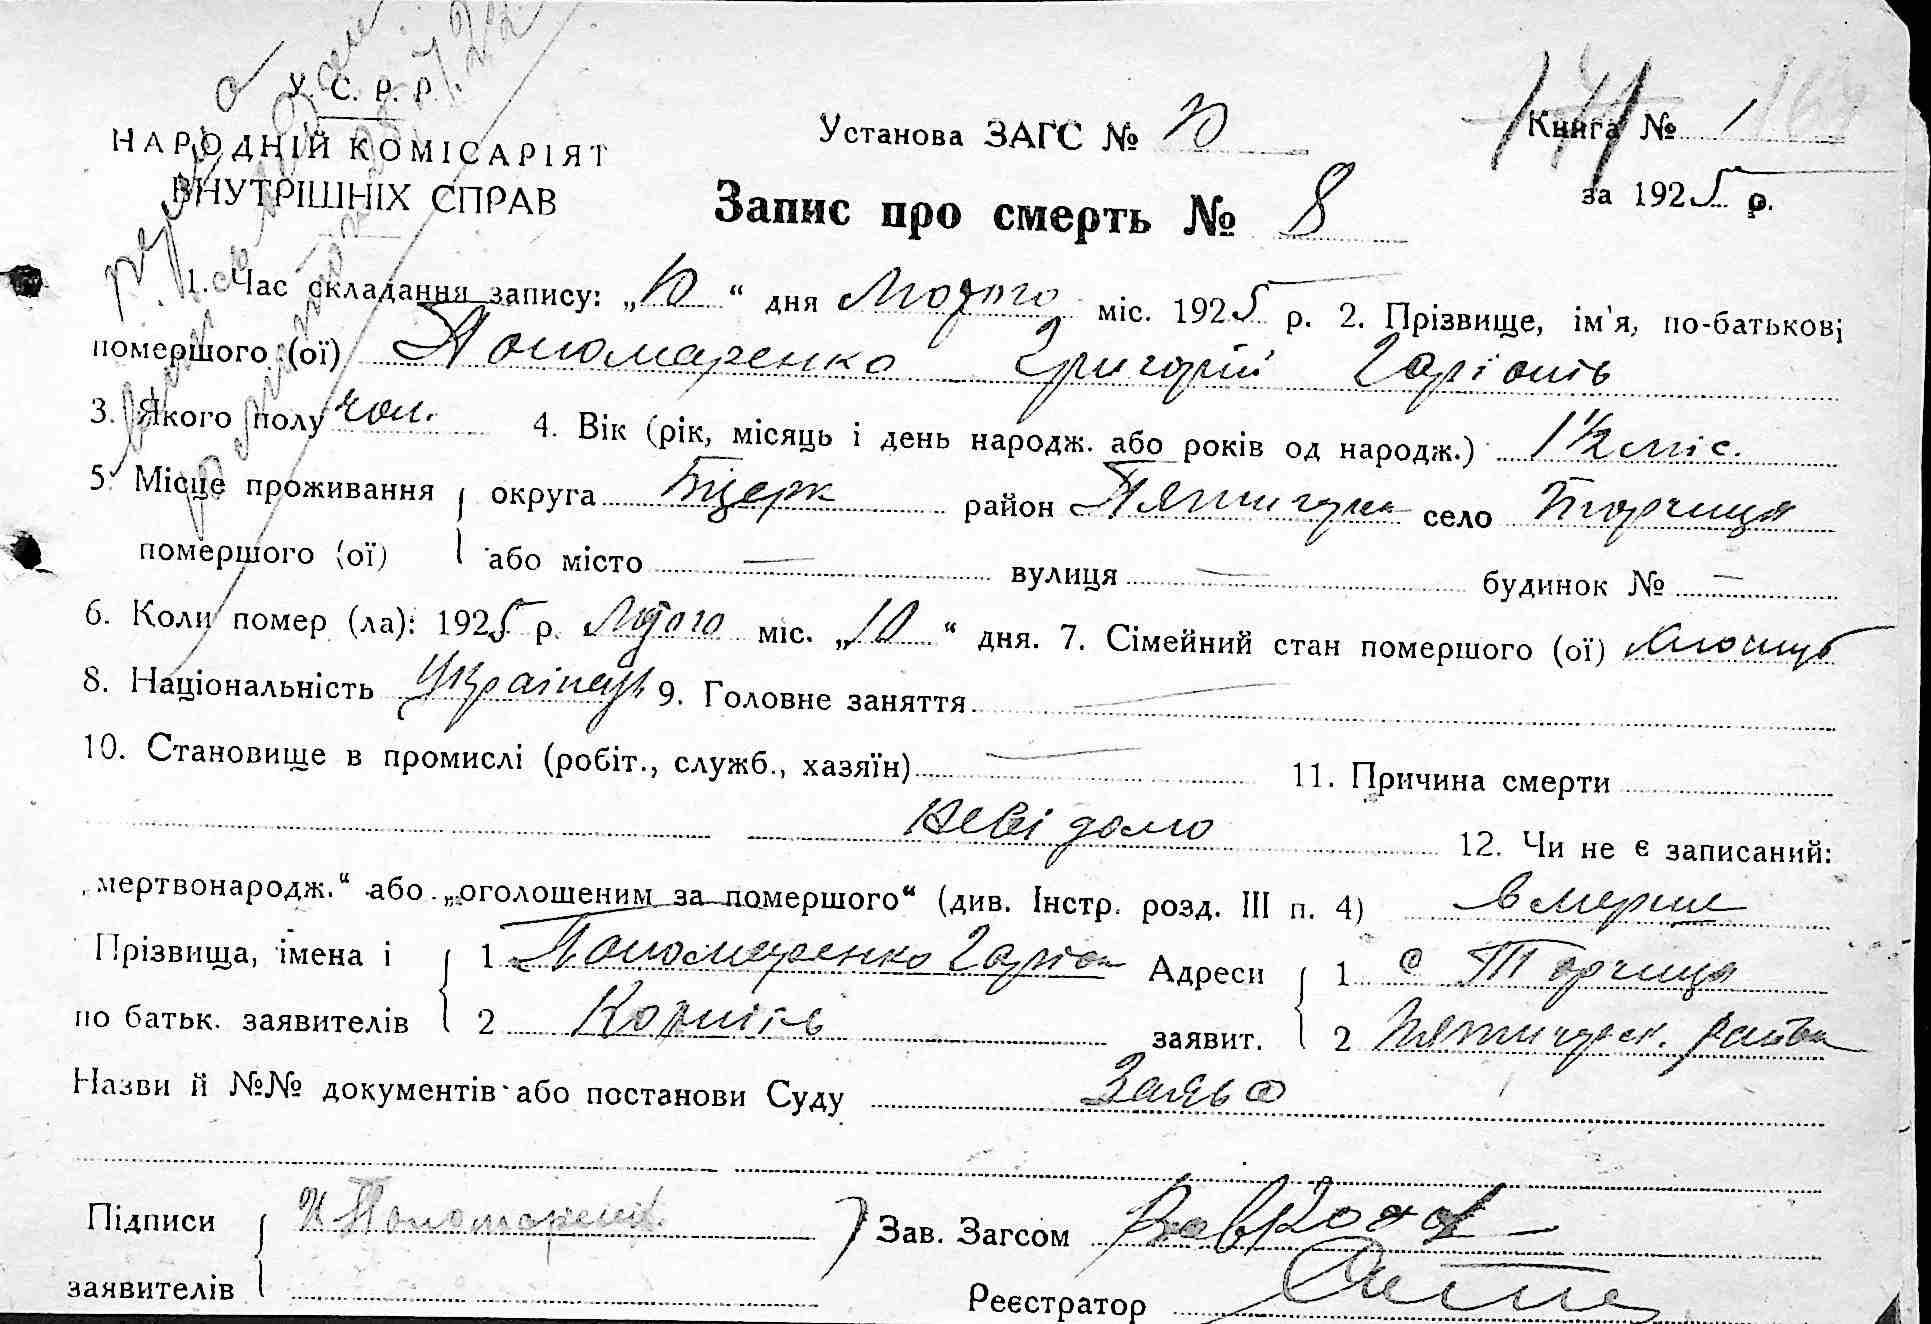 У. С. Р. Р.
НАРОДНІЙ КОМІСАРІЯТ
ВНУТРІШНІХ СПРАВ
Установа ЗАГС №
Книга № 1
за 1925 р.
Запис про смерть № 8
1. Час складання запису: „10“ дня Лютого міс. 1925 р. 2. Прізвище, ім'я, по-батькові
помершого (ої) Пономаренко Григорій Гаріонів
3. Якого полу чол. 4. Вік (рік, місяць і день народж. або років од народж.) 1½ міс.
5. Місце проживання округа Бцерк район Пятигорск село Торчиця
помершого (ої) або місто — вулиця — будинок № —
6. Коли помер (ла): 1925 р. Лютого міс. „10“ дня. 7. Сімейний стан помершого (ої)
8. Національність Українець 9. Головне заняття —
10. Становище в промислі (робіт., служб., хазяїн) — 11. Причина смерти
невідомо 12. Чи не є записаний:
„мертвонародж.“ або „оголошеним за помершого“ (див. Інстр. розд. III п. 4) вмерше
Прізвища, імена і 1 Пономаренко Гаріон Адреси 1 с Торчиця
по батьк. заявителів 2 Корніїв заявит. 2 Пятигорск. район
Назви й №№ документів або постанови Суду Заява
Підписи Пономаренк Зав. Загсом
заявителів Реєстратор